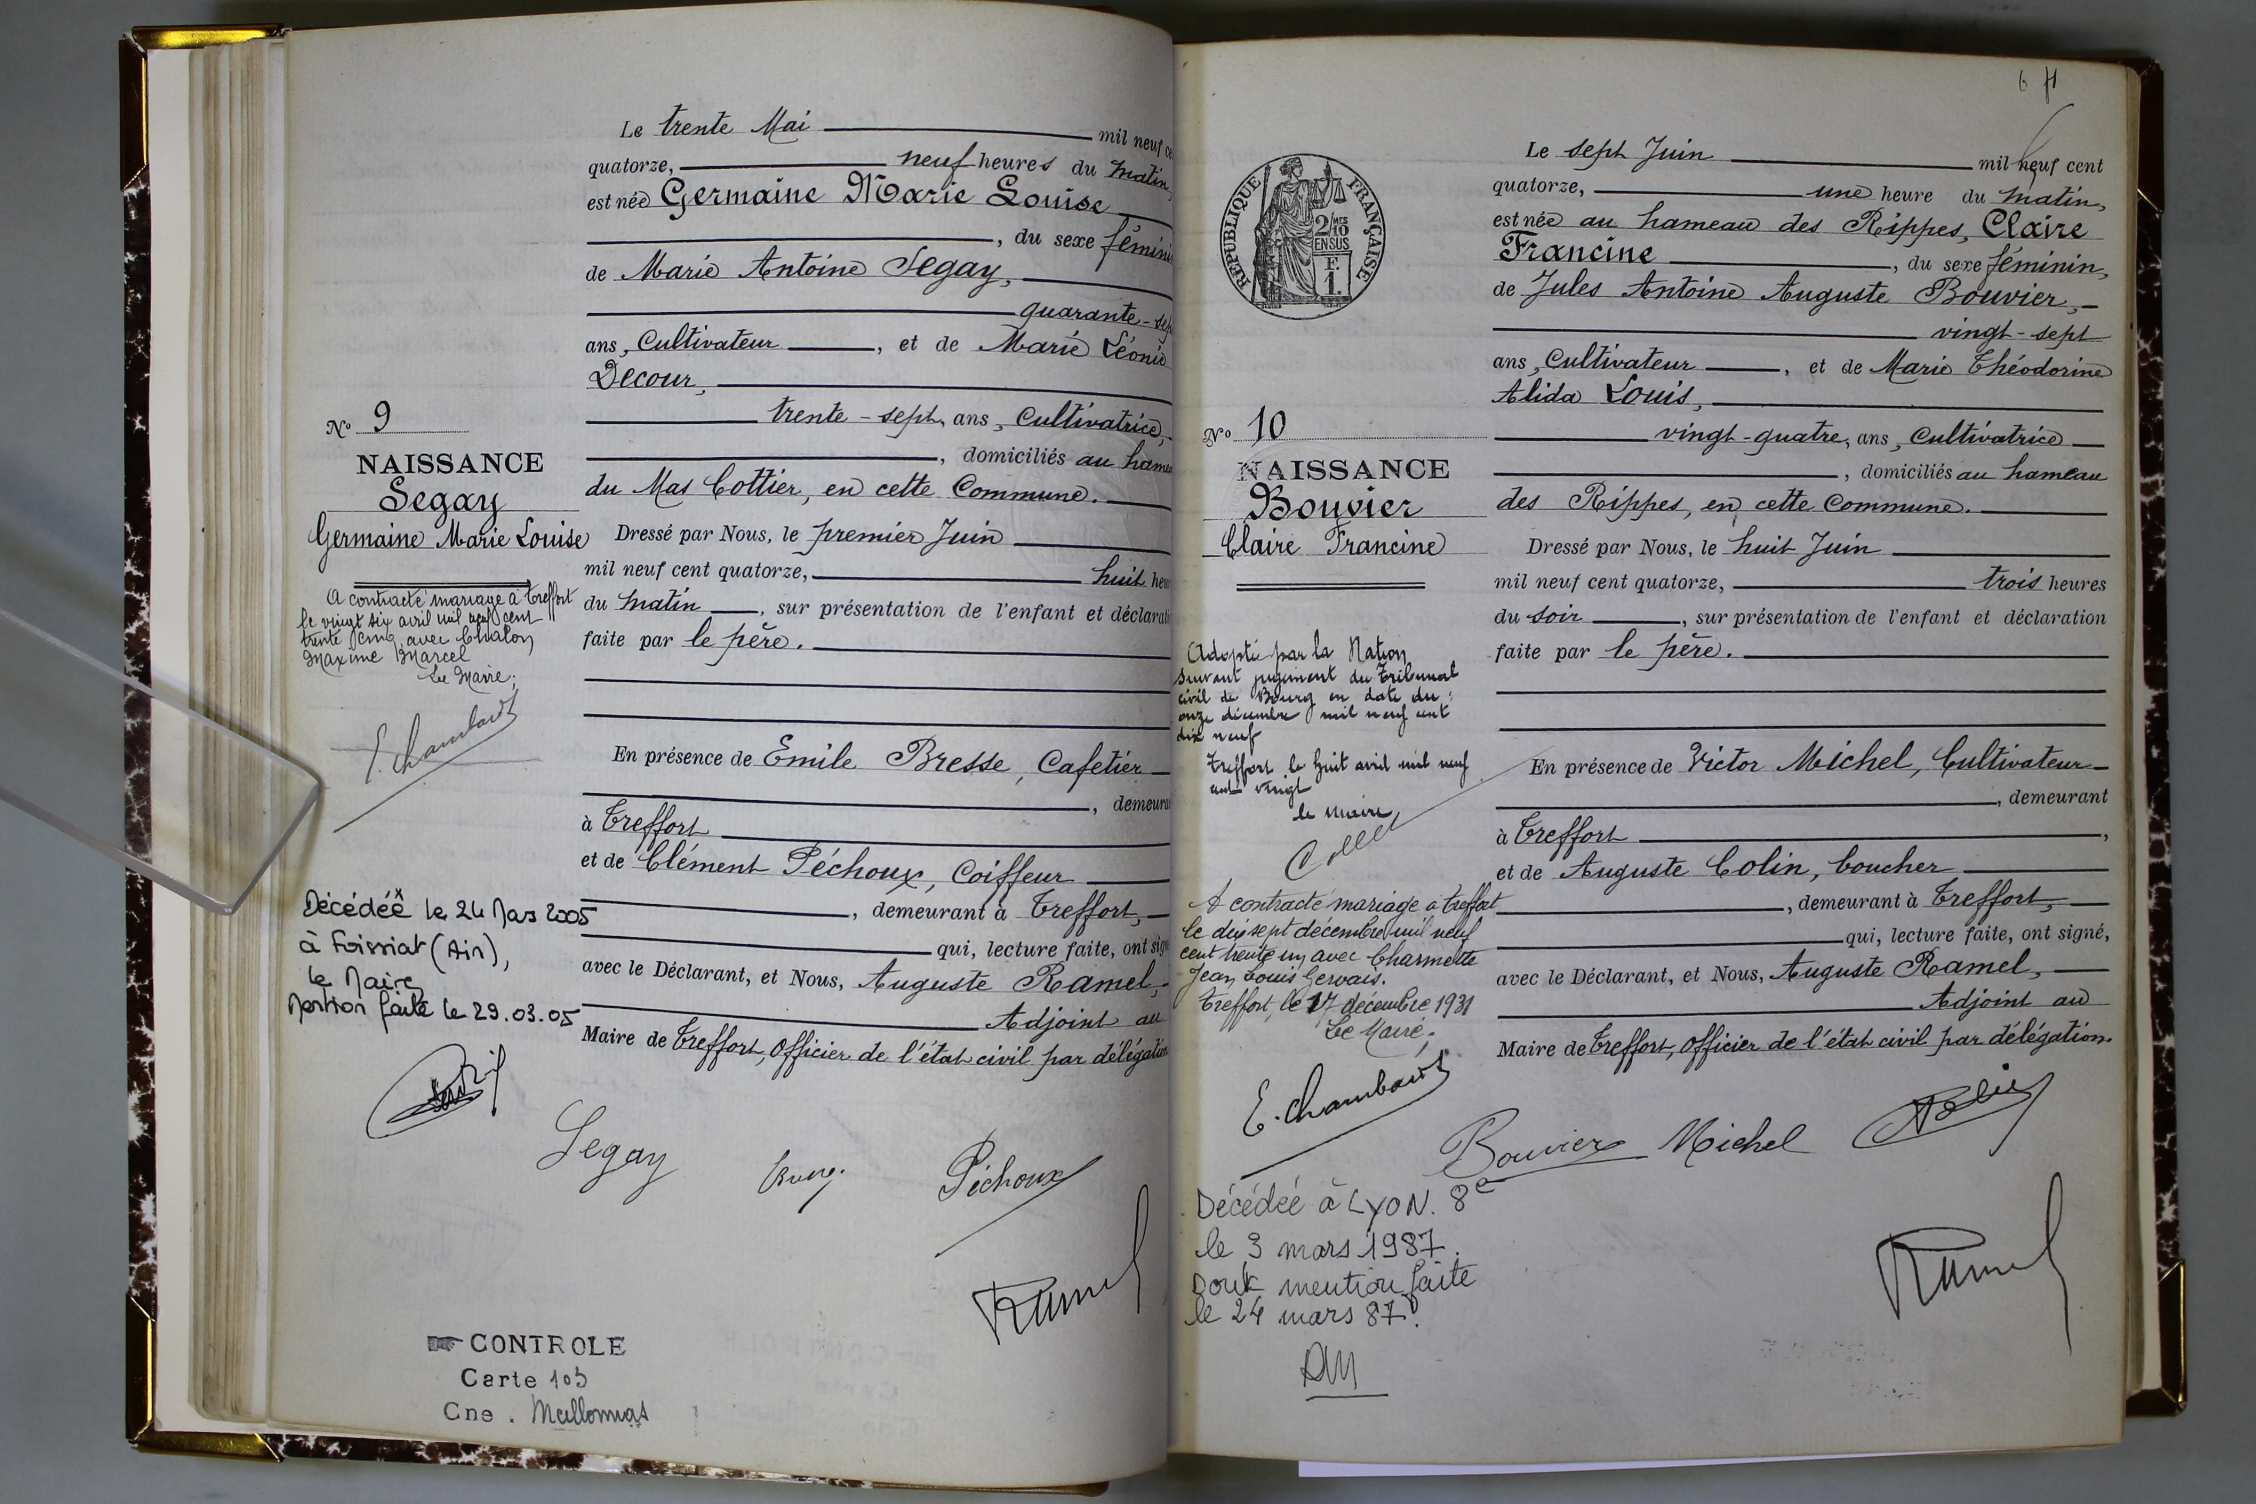 Le trente Mai mil neuf ce
quatorze, neuf heures du matin,
est née Germaine Marie Louise
, du sexe fémini
de Marie Antoine Segay,
quarante-sep
ans, Cultivateur , et de Marie Léonie
Decour,
trente-sept ans, Cultivatrice,
, domiciliés au hame
du Mas Cottier, en cette Commune.
Dressé par Nous, le premier Juin
mil neuf cent quatorze, huit heu
du matin , sur présentation de l'enfant et déclarati
faite par le père.
En présence de Emile Bresse, Cafetier
, demeura
à Treffort
et de Clément Péchoux, Coiffeur
, demeurant à Treffort,
qui, lecture faite, ont sign
avec le Déclarant, et Nous, Auguste Ramel,
Adjoint au
Maire de Treffort, Officier de l'état civil par délégation
No 9
NAISSANCE
Segay
Germaine Marie Louise
A contracté mariage à Treffort
le vingt six avril mil neuf cent
trente cinq avec Chalon
Maxime Marcel
Le Maire;
E. Chambard
Décédée le 24 Mars 2005
à Foissiat (Ain),
le Maire
Mention faite le 29.03.05
Segay
Péchoux
Ramel
CONTROLE
Carte 103
Cne.
6
Le sept Juin mil neuf cent
quatorze, une heure du matin,
est née au hameau des Rippes, Claire
Francine , du sexe féminin,
de Jules Antoine Auguste Bouvier,
vingt-sept
ans, Cultivateur , et de Marie Théodorine
Alida Louis,
vingt-quatre, ans, Cultivatrice
, domiciliés au hameau
des Rippes, en cette Commune.
Dressé par Nous, le huit Juin
mil neuf cent quatorze, trois heures
du soir , sur présentation de l'enfant et déclaration
faite par le père.
En présence de Victor Michel, Cultivateur
, demeurant
à Treffort ,
et de Auguste Colin, boucher
, demeurant à Treffort,
qui, lecture faite, ont signé,
avec le Déclarant, et Nous, Auguste Ramel,
Adjoint au
Maire de Treffort, Officier de l'état civil par délégation.
REPUBLIQUE FRANÇAISE
2/10
EN SUS
F.
1.
No 10
NAISSANCE
Bouvier
Claire Francine
Adopté par la Nation
suivant jugement du Tribunal
civil de Bourg en date du :
onze décembre mil neuf cent
dix neuf
Treffort le huit avril mil neuf
cent vingt
le maire
A contracté mariage à Treffort
le dix sept décembre mil neuf
cent trente un avec Charmette
Jean Louis Gervais.
Treffort, le 17 décembre 1931
Le Maire;
E. Chambard
Bouvier Michel Colin
Décédée à LYON. 8e
le 3 mars 1987.
Dont mention faite
le 24 mars 87.
Ramel